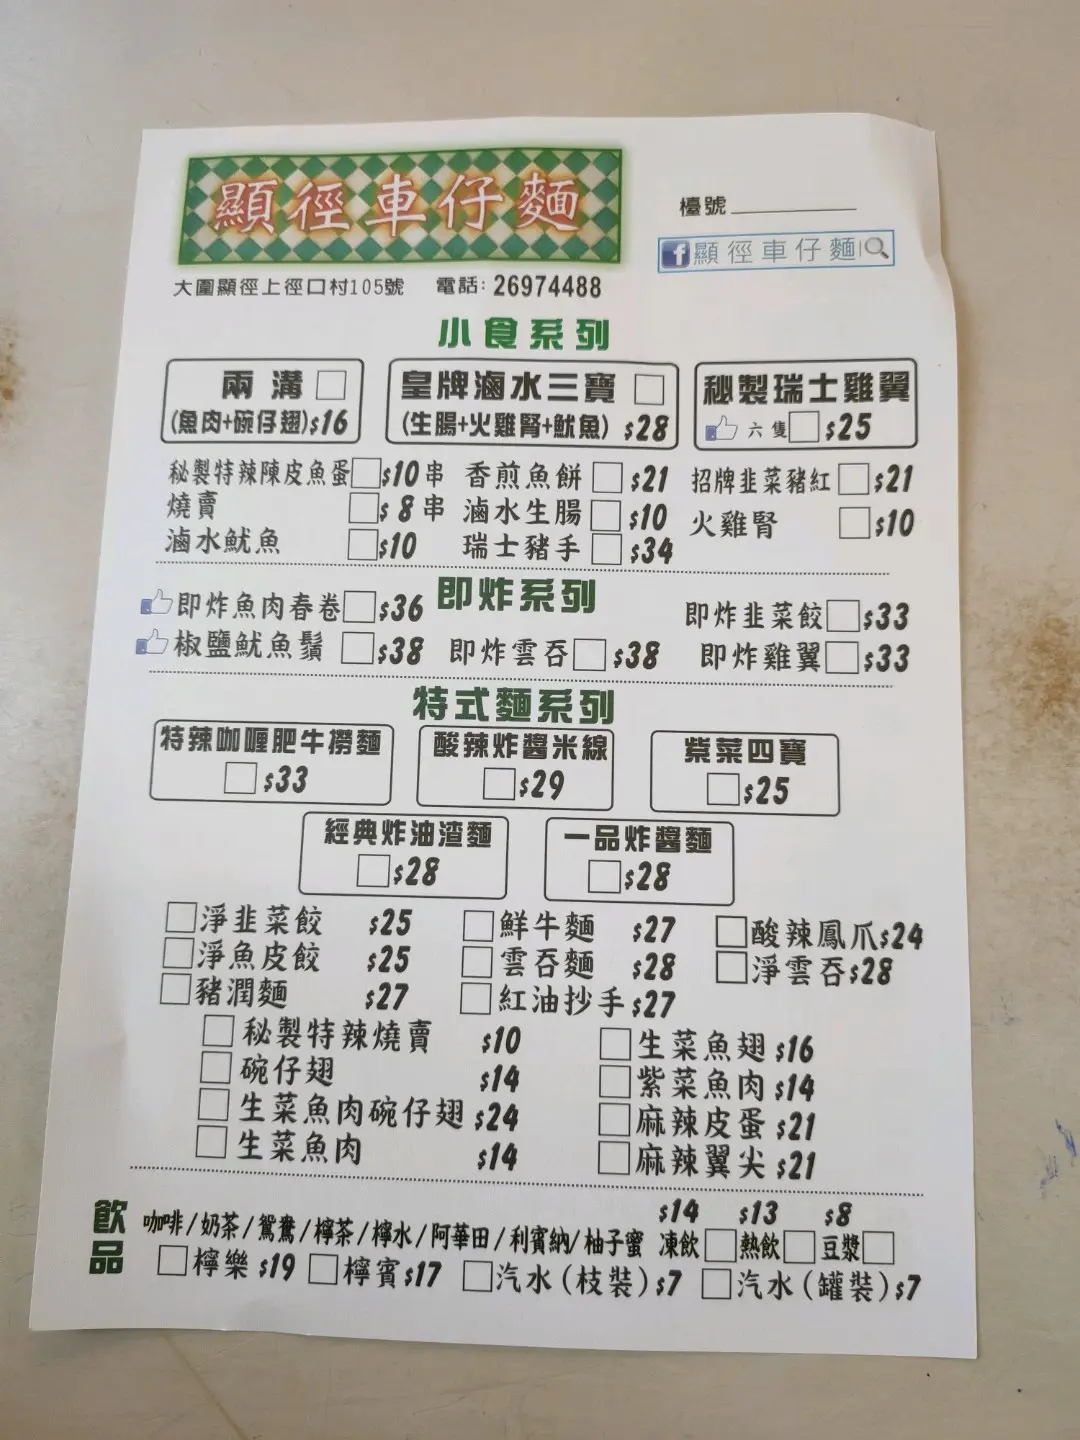 顯徑車仔麵
檯號
f 顯徑車仔麵
大圍顯徑上徑口村105號 電話: 26974488
小食系列
兩溝 皇牌滷水三寶 秘製瑞士雞翼
(魚肉+碗仔翅)$16 (生腸+火雞腎+魷魚) $28 六隻 $25
秘製特辣陳皮魚蛋 $10串 香煎魚餅 $21 招牌韭菜豬紅 $21
燒賣 $8串 滷水生腸 $10 火雞腎 $10
滷水魷魚 $10 瑞士豬手 $34
即炸系列
即炸魚肉春卷 $36 即炸韭菜餃 $33
椒鹽魷魚鬚 $38 即炸雲吞 $38 即炸雞翼 $33
特式麵系列
特辣咖喱肥牛撈麵 酸辣炸醬米線 紫菜四寶
$33 $29 $25
經典炸油渣麵 一品炸醬麵
$28 $28
淨韭菜餃 $25 鮮牛麵 $27 酸辣鳳爪 $24
淨魚皮餃 $25 雲吞麵 $28 淨雲吞 $28
豬潤麵 $27 紅油抄手 $27
秘製特辣燒賣 $10 生菜魚翅 $16
碗仔翅 $14 紫菜魚肉 $14
生菜魚肉碗仔翅 $24 麻辣皮蛋 $21
生菜魚肉 $14 麻辣翼尖 $21
飲品
$14 $13 $8
咖啡/奶茶/鴛鴦/檸茶/檸水/阿華田/利賓納/柚子蜜 凍飲 熱飲 豆漿
檸樂 $19 檸賓 $17 汽水(枝裝) $7 汽水(罐裝) $7